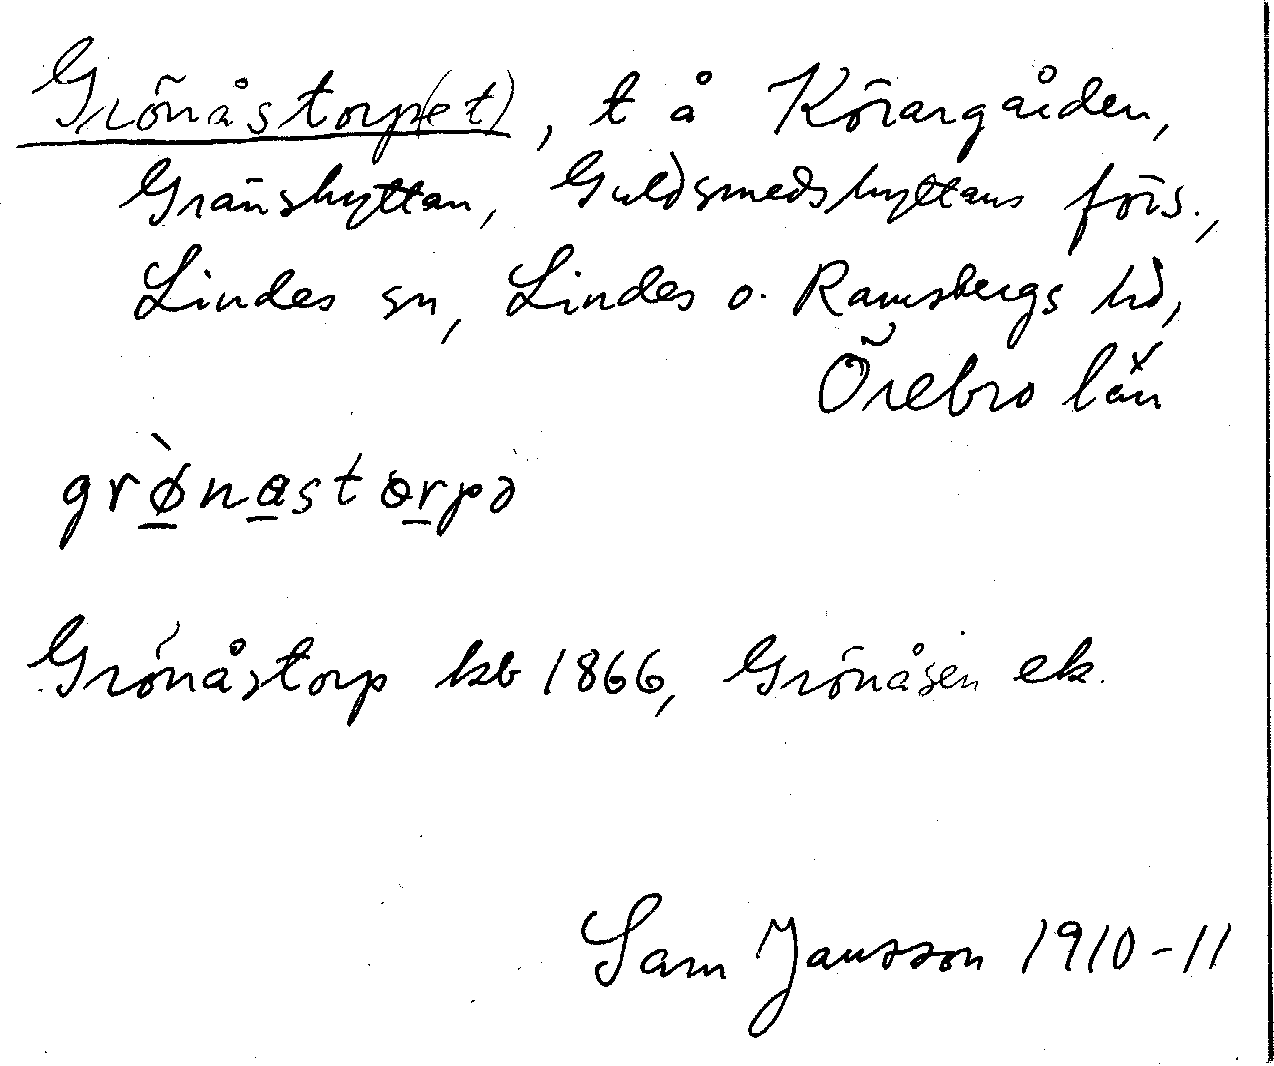 Grönåstorp(et), t å Körargården,
Gränshyttan, Guldsmedshyttans förs.,
Lindes sn, Lindes o. Ramsbergs hd,
Örebro län
grø̀nastɵrpə
Grönåstorp kb 1866, Grönåsen ek.
Sam Jansson 1910-11